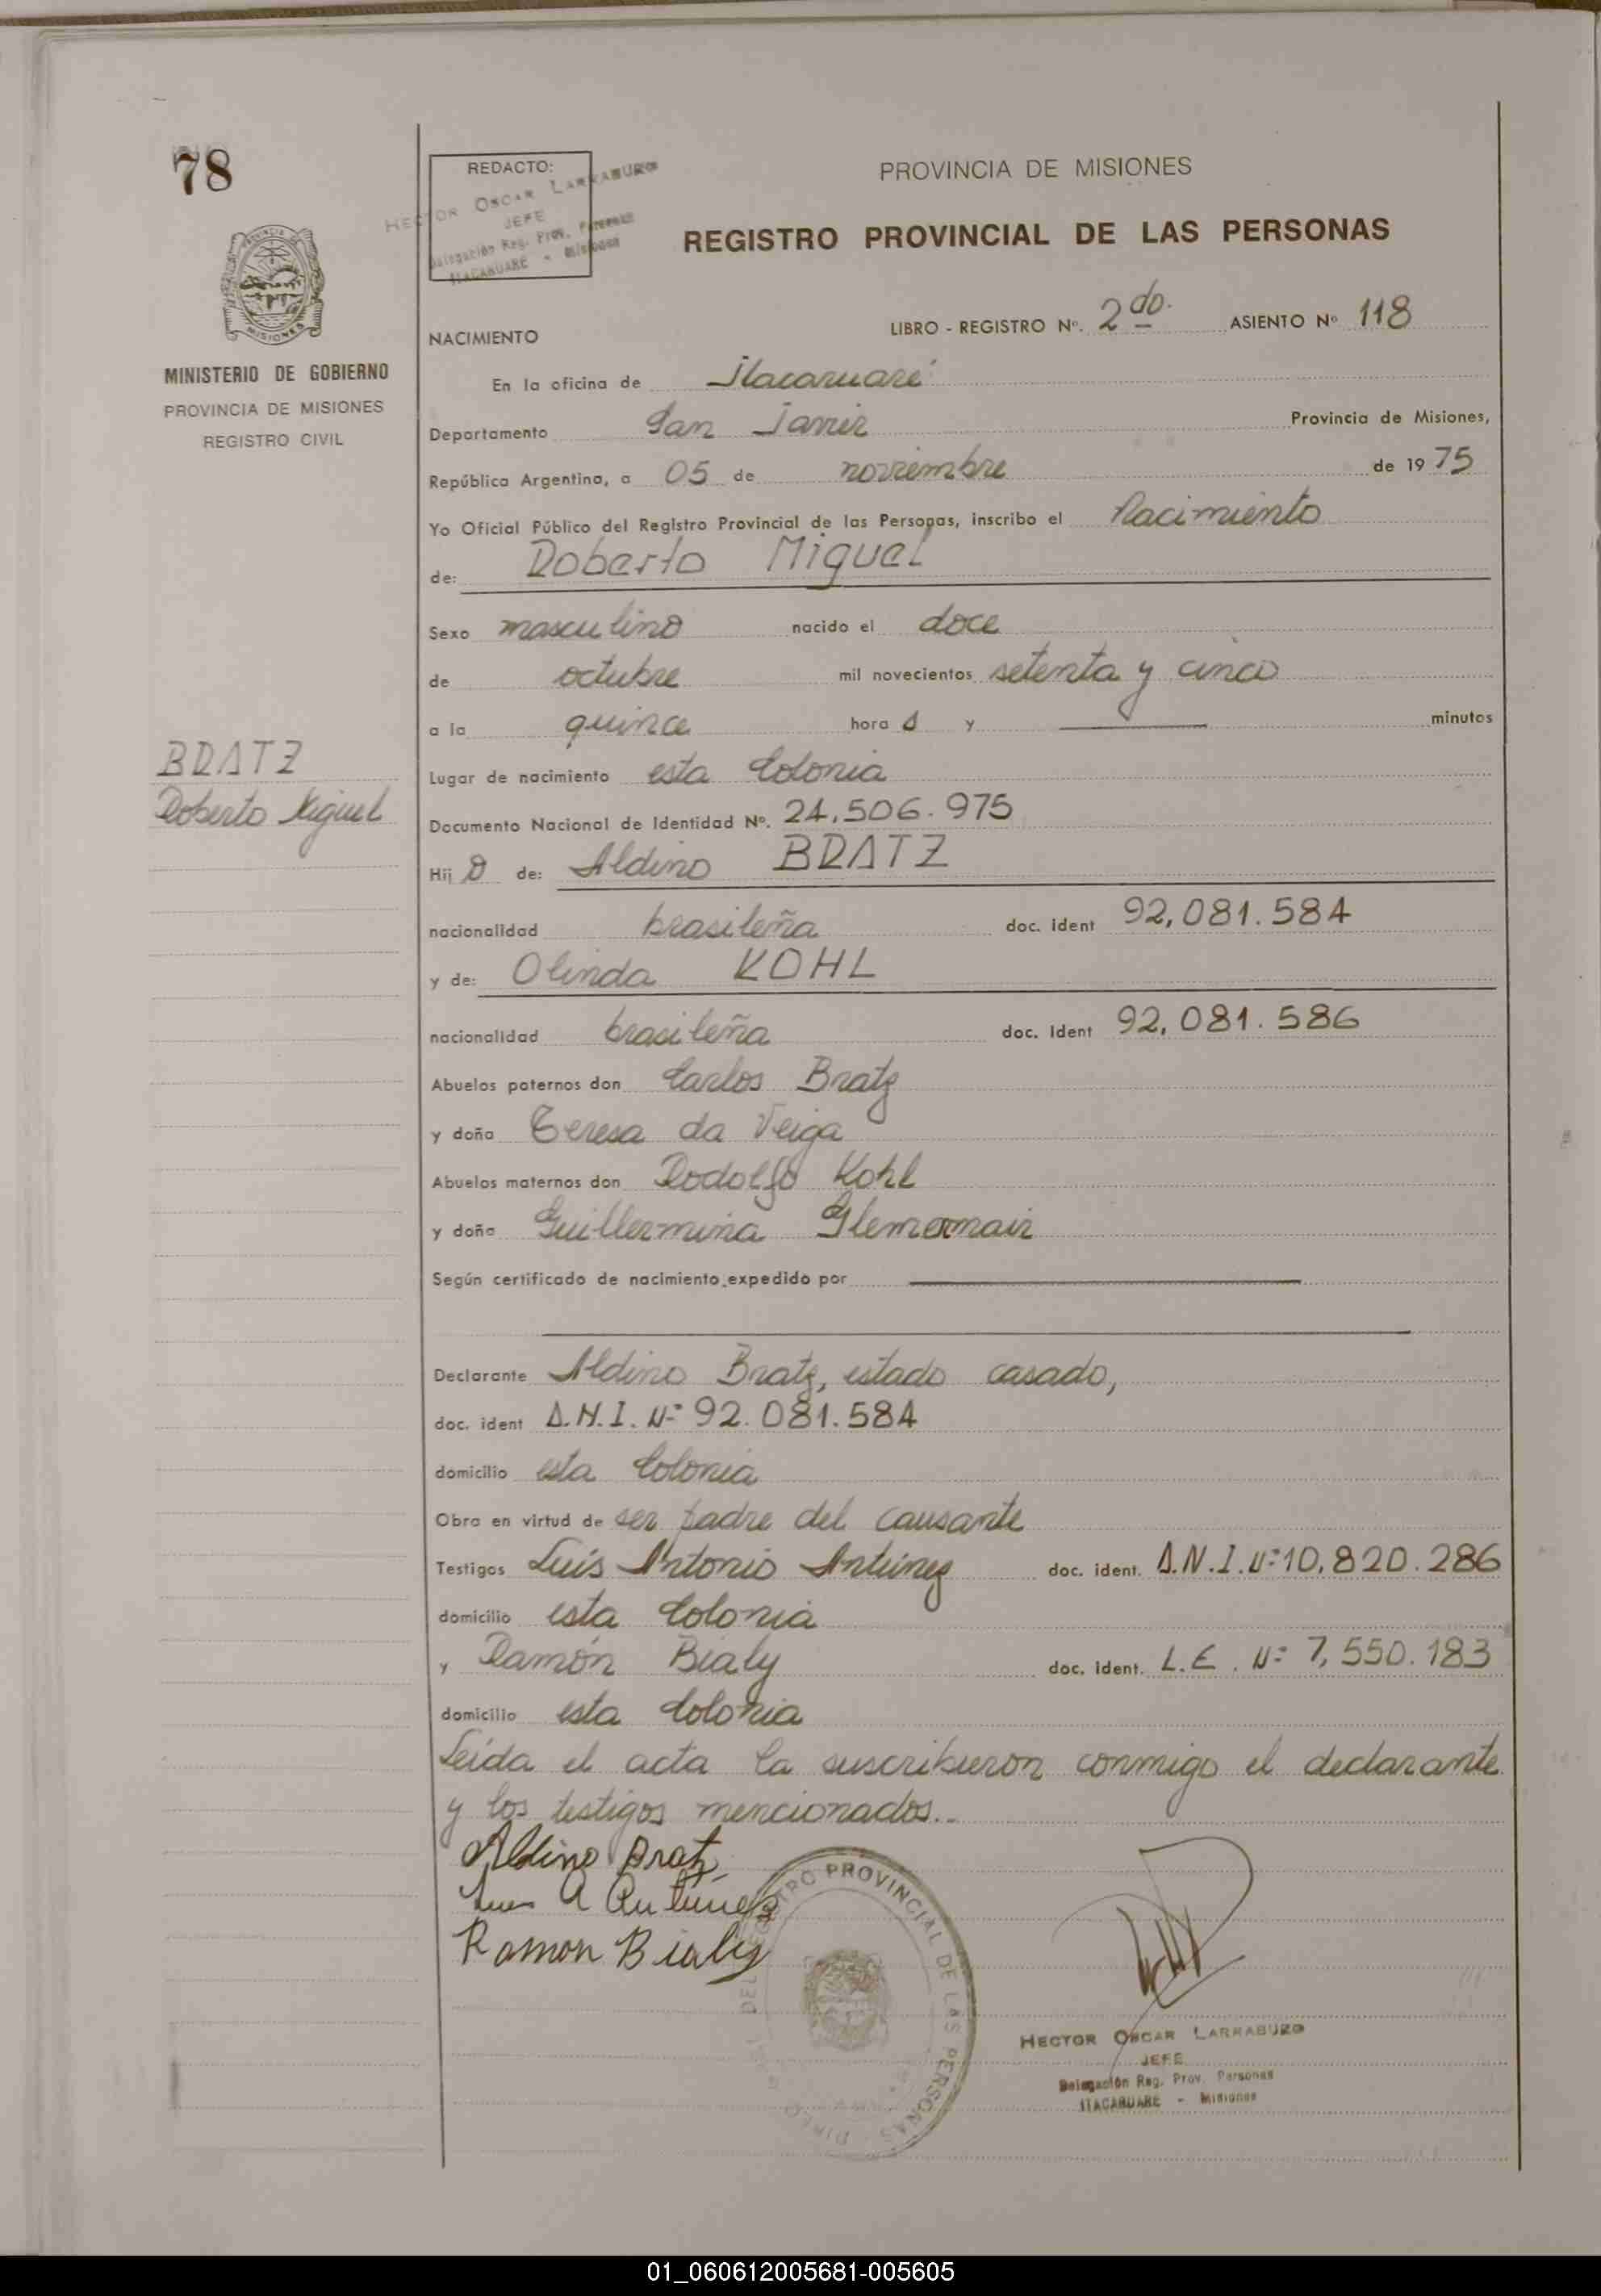 78
REDACTO:
HECTOR OSCAR LARRABURO
JEFE
Delegación Reg. Prov. Personas
ITACARUARE - Misiones
PROVINCIA DE MISIONES
REGISTRO PROVINCIAL DE LAS PERSONAS
LIBRO - REGISTRO Nº. 2do. ASIENTO Nº 118
PROVINCIA DE MISIONES
MINISTERIO DE GOBIERNO
PROVINCIA DE MISIONES
REGISTRO CIVIL
NACIMIENTO
En la oficina de Itacaruaré
Departamento San Javier Provincia de Misiones,
República Argentina, a 05 de noviembre de 1975
Yo Oficial Público del Registro Provincial de las Personas, inscribo el Nacimiento
de: Roberto Miguel
Sexo masculino nacido el doce
de octubre mil novecientos setenta y cinco
a la quince hora s y minutos
BRATZ
Roberto Miguel
Lugar de nacimiento esta Colonia
Documento Nacional de Identidad Nº. 24.506.975
Hijo de: Aldino BRATZ
nacionalidad brasileña doc. ident 92,081.584
y de: Olinda KOHL
nacionalidad brasileña doc. Ident 92,081.586
Abuelos paternos don Carlos Bratz
y doña Teresa da Veiga
Abuelos maternos don Rodolfo Kohl
y doña Guillermina
Según certificado de nacimiento expedido por
Declarante Aldino Bratz, estado casado,
doc. ident D.N.I. Nº 92.081.584
domicilio esta Colonia
Obra en virtud de ser padre del causante
Testigos Luis Antonio Antúnez doc. ident. D.N.I.Nº 10,820.286
domicilio esta Colonia
y Ramón Bialy doc. Ident. L.E. Nº 7,550.183
domicilio esta Colonia
Leída el acta la suscribieron conmigo el declarante
y los testigos mencionados..
Aldino Bratz
Luis A Antunez
Ramon Bialy
REGISTRO PROVINCIAL DE LAS PERSONAS
HECTOR OSCAR LARRABURO
JEFE
Delegación Reg. Prov. Personas
ITACARUARE - Misiones
01_060612005681-005605